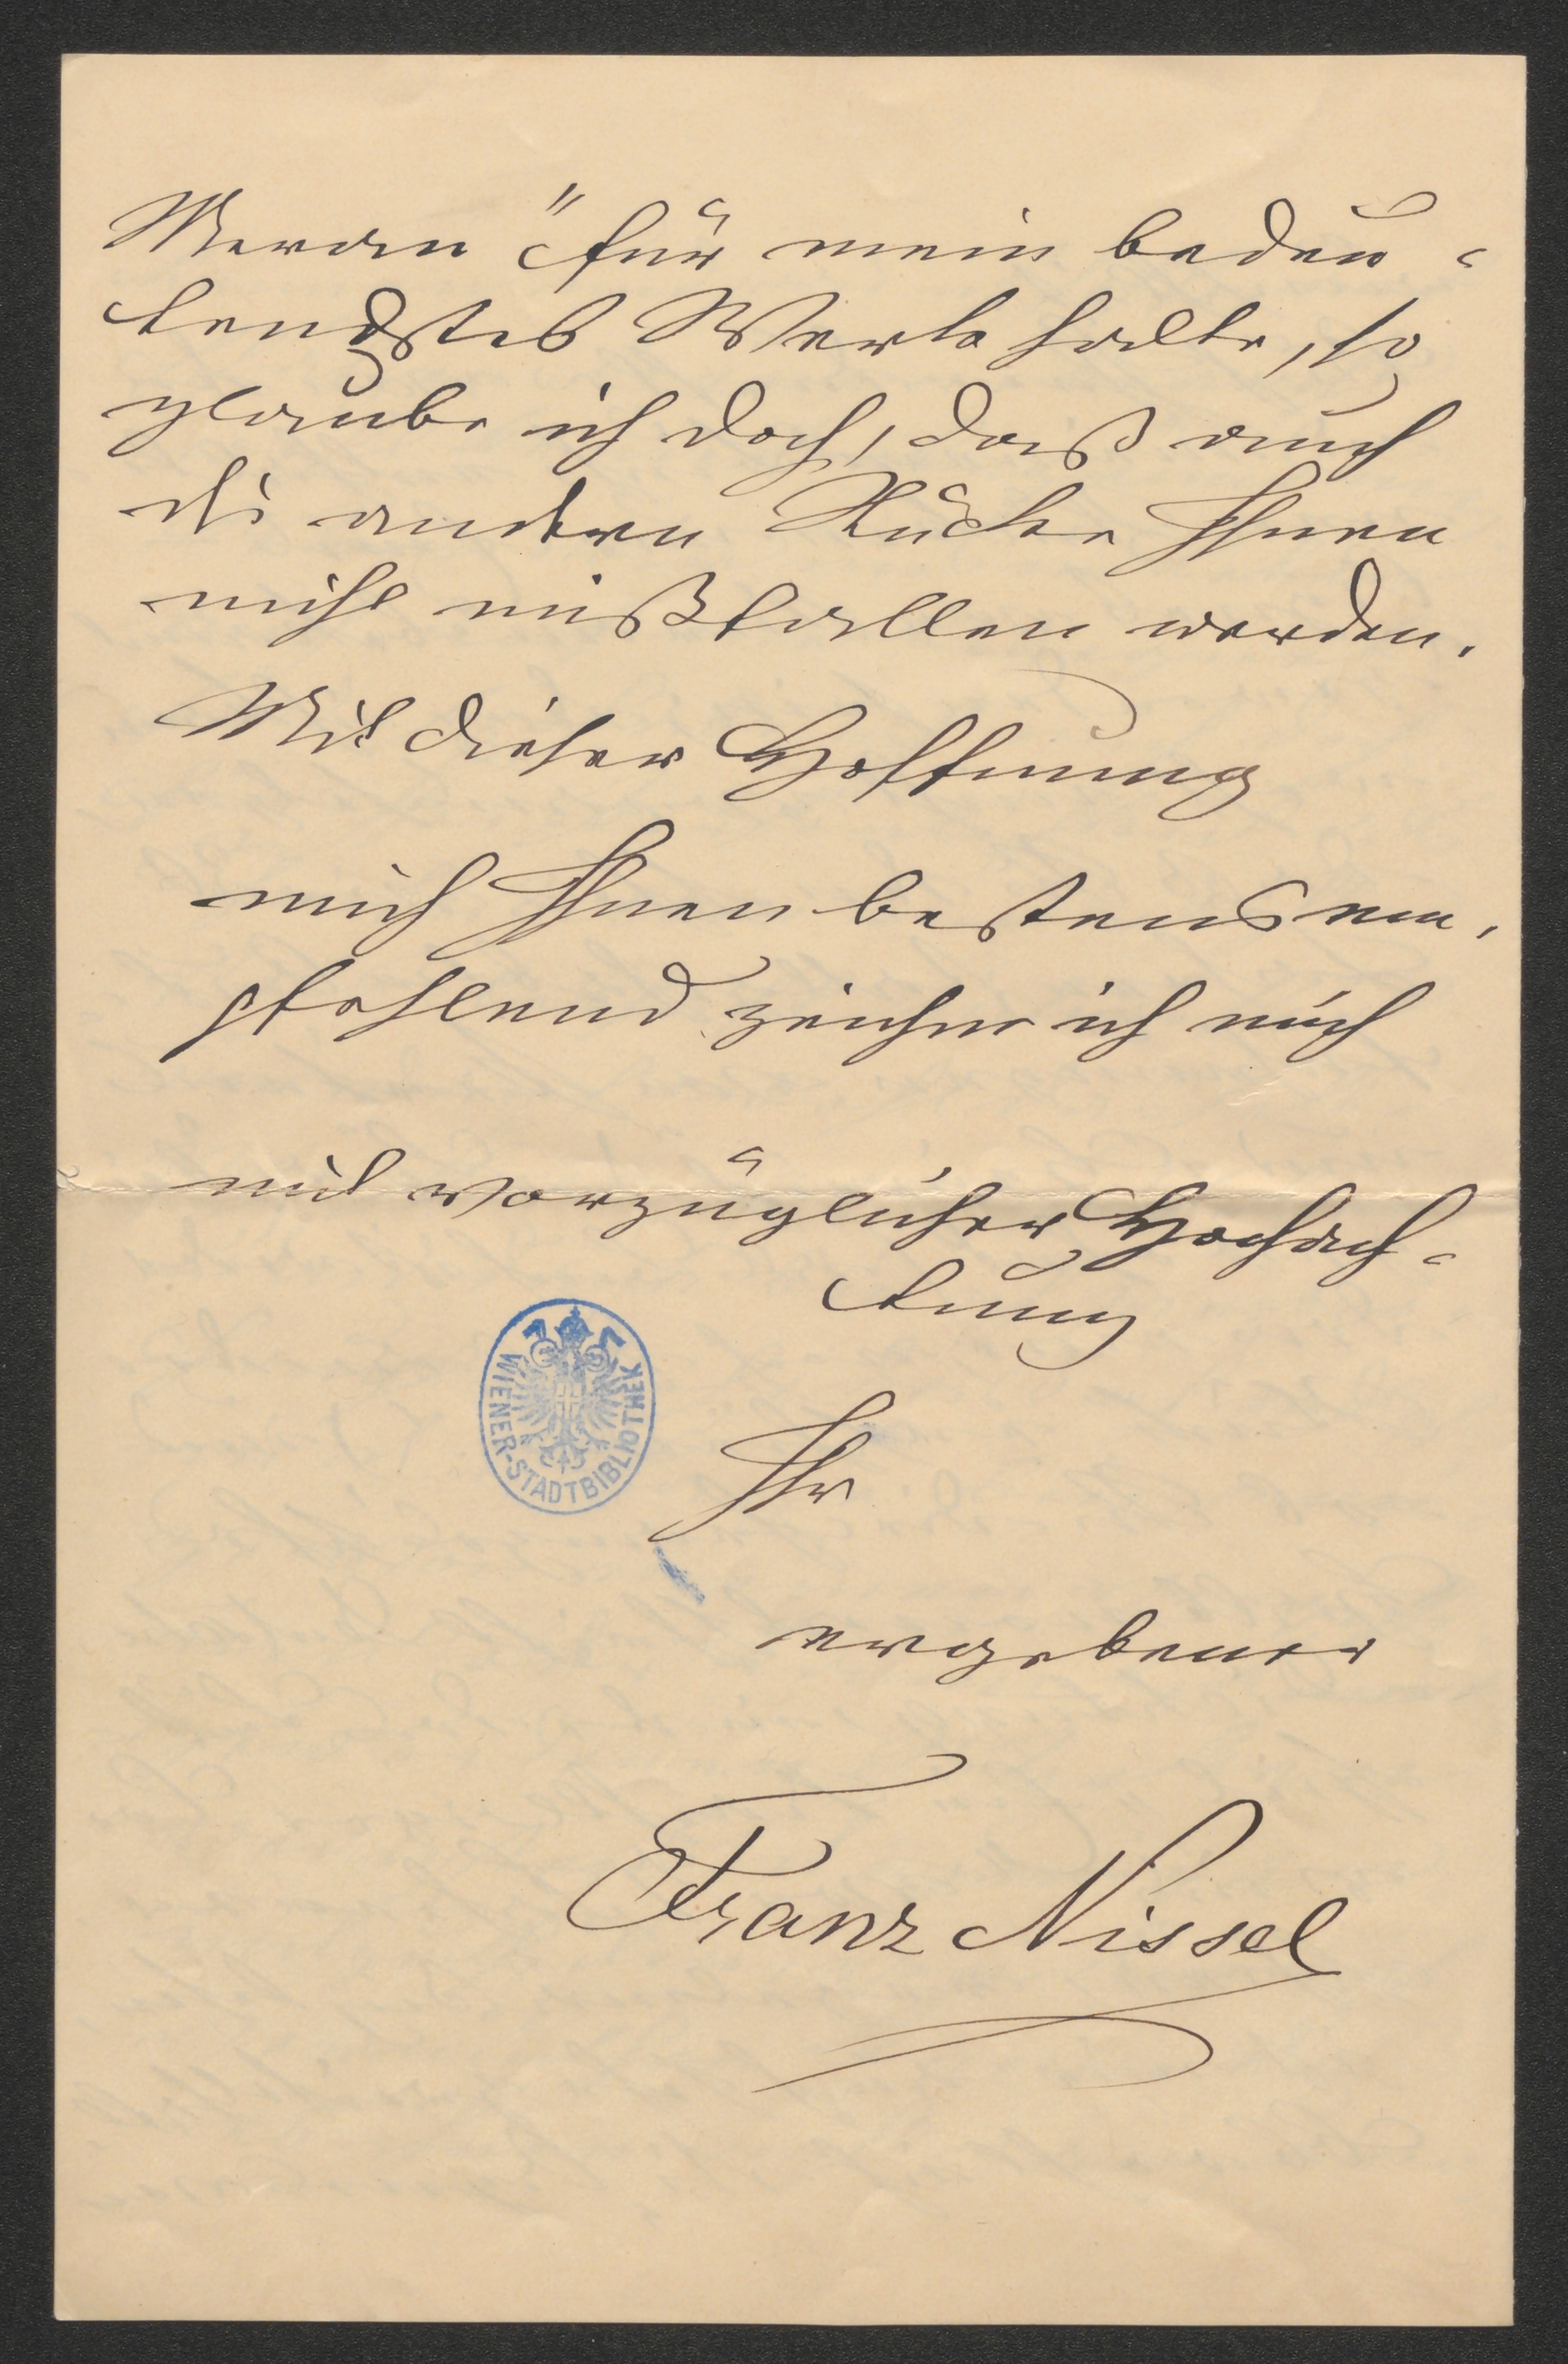 Meran" für mein bedeu-
tendstes Werk halte, so
glaube ich doch, daß auch
die andern Stücke Ihnen
nicht mißfallen werden.
Mit dieser Hoffnung
mich Ihnen bestens em-
pfehlend zeichne ich mich
mit vorzüglicher Hochach-
tung
WIENER-STADTBIBLIOTHEK
Ihr
ergebener
Franz Nissel